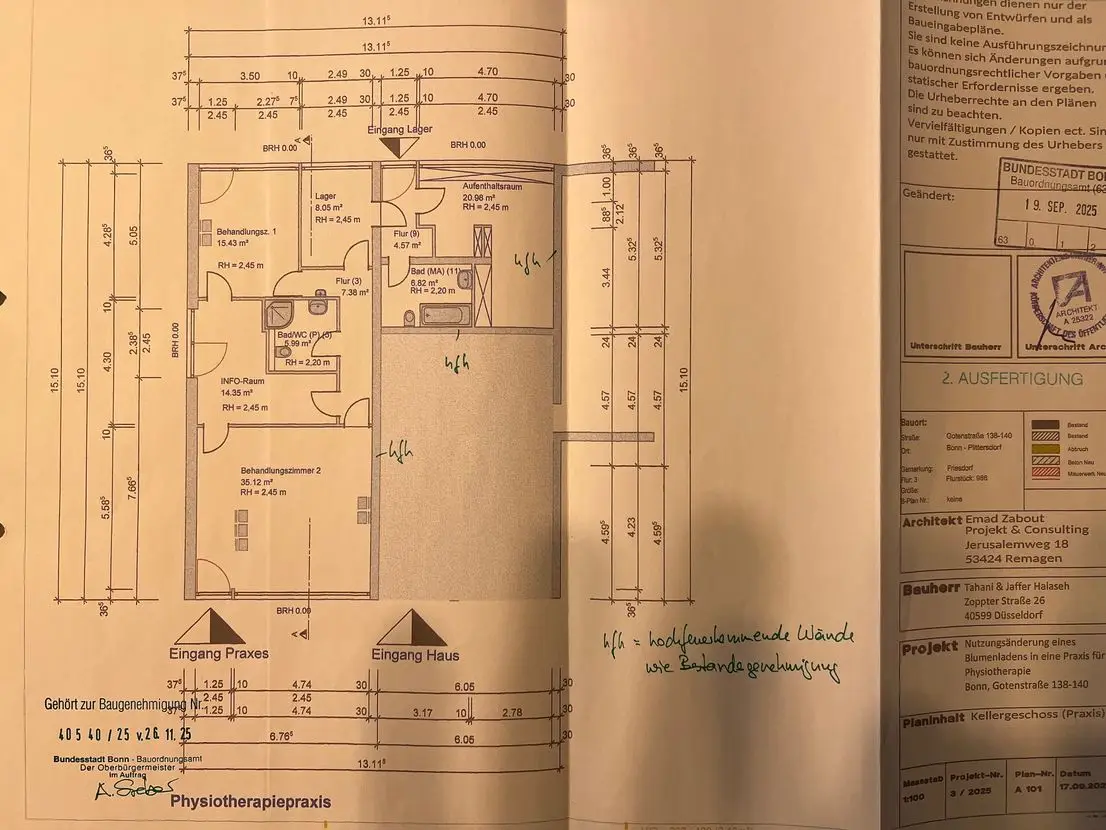 13.11⁵
13.11⁵
37⁵ 3.50 10 2.49 30 1.25 10 4.70 30
37⁵ 1.25 2.27⁵ 7⁵ 2.49 30 1.25 10 4.70 30
2.45 2.45 2.45 2.45 2.45
Eingang Lager
BRH 0.00 A BRH 0.00
36⁵ 36⁵ 36⁵ 36⁵
Lager
8.05 m²
RH = 2,45 m
Aufenthaltsraum
20.98 m²
RH = 2,45 m
Behandlungsz. 1
15.43 m²
RH = 2,45 m
Flur (9)
4.57 m²
Bad (MA) (11)
6.82 m²
RH = 2,20 m
hfh
Flur (3)
7.38 m²
Bad/WC (P) (5)
5.99 m²
RH = 2,20 m
hfh
INFO-Raum
14.35 m²
RH = 2,45 m
BRH 0.00
hfh
Behandlungszimmer 2
35.12 m²
RH = 2,45 m
15.10 15.10 4.28⁵ 10 4.30 10 5.58⁵ 36⁵
5.05 2.38⁵ 2.45 7.66⁵
1.00 88⁵ 2.12⁵ 3.44 5.32⁵ 5.32⁵
24 24 24
4.57 4.57 4.57
15.10
4.59⁵ 4.23 4.59⁵
36⁵
BRH 0.00
A
Eingang Praxes
Eingang Haus
hfh = hochfeuerhemmende Wände
wie Bestandsgenehmigung
37⁵ 1.25 10 4.74 30 6.05 30
2.45 2.45
37⁵ 1.25 10 4.74 30 3.17 10 2.78 30
6.76⁵ 6.05 30
13.11⁵
Gehört zur Baugenehmigung Nr.
40540/25 v. 26.11.25
Bundesstadt Bonn - Bauordnungsamt
Der Oberbürgermeister
Im Auftrag
Physiotherapiepraxis
dienen nur der
Erstellung von Entwürfen und als
Baueingabepläne.
Sie sind keine Ausführungszeichnun
Es können sich Änderungen aufgru
bauordnungsrechtlicher Vorgaben
statischer Erfordernisse ergeben.
Die Urheberrechte an den Plänen
sind zu beachten.
Vervielfältigungen / Kopien ect. Sin
nur mit Zustimmung des Urhebers
gestattet.
Geändert:
BUNDESSTADT BO
Bauordnungsamt (63
19. SEP. 2025
63 0 1 2
ARCHITEKT
A 25322
Unterschrift Bauherr
Unterschrift Arc
2. AUSFERTIGUNG
Bauort:
Straße: Gotenstraße 138-140
Ort: Bonn - Plittersdorf
Gemarkung: Friesdorf
Flur: 3 Flurstück: 986
Größe:
B-Plan Nr.: keine
Bestand
Bestand
Abbruch
Beton Neu
Mauerwerk Neu
Architekt Emad Zabout
Projekt & Consulting
Jerusalemweg 18
53424 Remagen
Bauherr Tahani & Jaffer Halaseh
Zoppter Straße 26
40599 Düsseldorf
Projekt Nutzungsänderung eines
Blumenladens in eine Praxis für
Physiotherapie
Bonn, Gotenstraße 138-140
Planinhalt Kellergeschoss (Praxis)
Massstab Projekt-Nr. Plan-Nr. Datum
1:100 3 / 2025 A 101 17.09.202